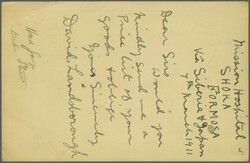 Mission Hospital
SHOKA
FORMOSA
Via Siberia & Japan
7th March 1911
Dear Sir
Would you
kindly send me a
Price list of your
goods & oblige
Yours Sincerely
David Landsborough